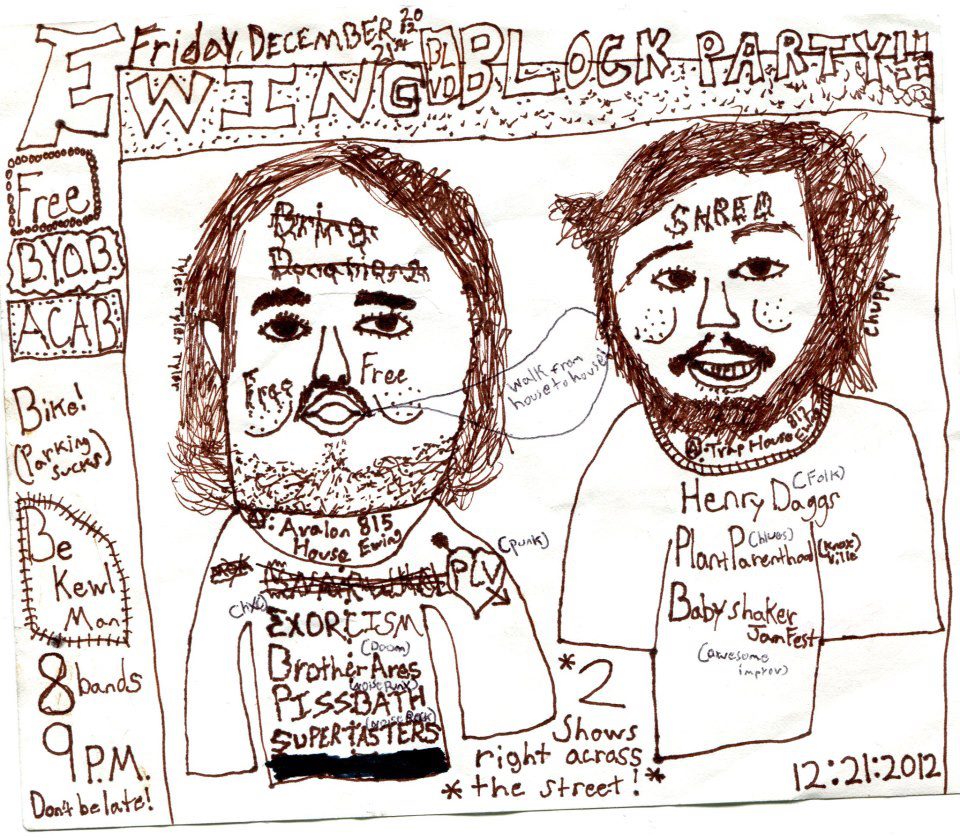 Friday, DECEMBER 21st 2012
EWING BLVD BLOCK PARTY!!
Free
B.Y.O.B.
ACAB
Bike!
(Parking
sucks)
Be
Kewl
Man
8 bands
9 P.M.
Don't be late!
Tyler Tyler Tyler
Bring
Free
Free
walk from
house to house!
@: Avalon 815
House Ewing
PLV
(punk)
EXORCISM
(Doom)
Brother Ares
(NOISE PUNK)
PISSBATH
(NOISE Rock)
SUPERTASTERS
SHRED
Chuppy
@: Trap House 817
Ewing
(Folk)
Henry Daggs
(blues)
Plant Parenthood (Knoxville)
Babyshaker
JamFest
(awesome
improv)
*2
Shows
right across
* the street! *
12:21:2012